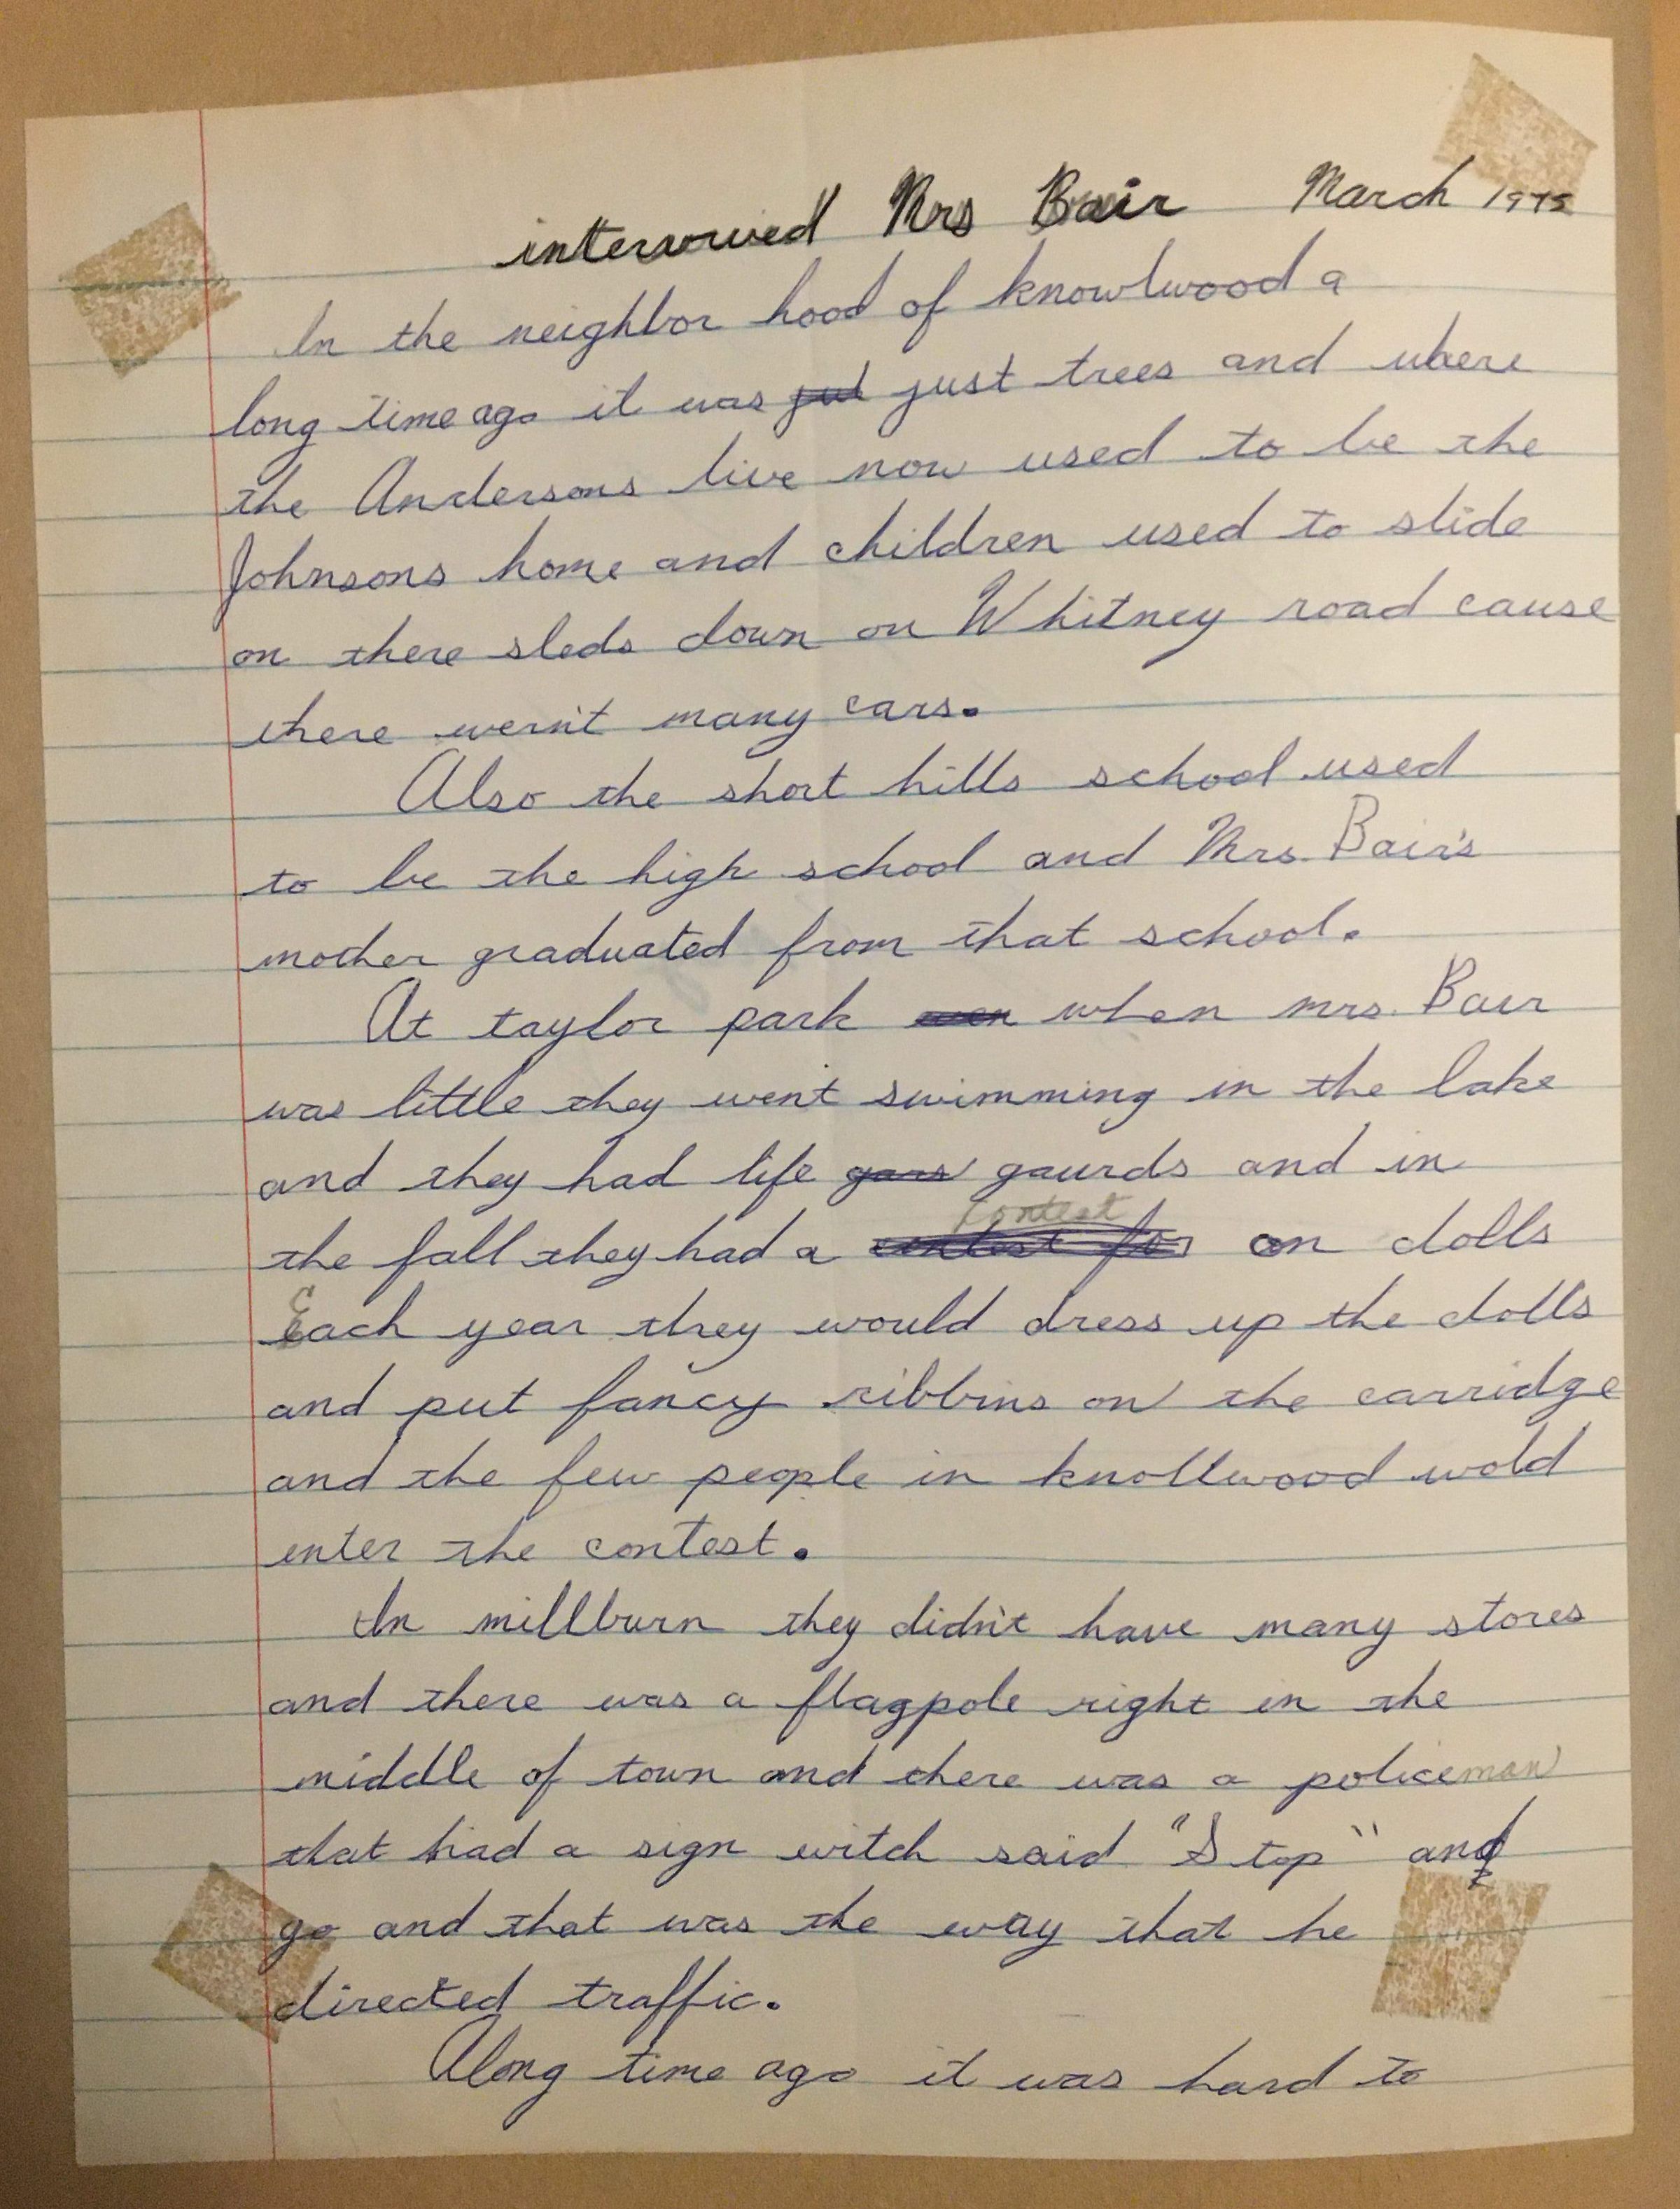 intervived Mrs Bair March 1975
In the neighbor hood of knowlwood a
long time ago it was just trees and where
the Andersons live now used to be the
Johnsons home and children used to slide
on there sleds down on Whitney road cause
there wern't many cars.
Also the short hills school used
to be the high school and Mrs. Bair's
mother graduated from that school.
At taylor park when mrs. Bair
was little they went swimming in the lake
and they had life gaurds and in
the fall they had a contest on dolls
Each year they would dress up the dolls
and put fancy ribbins on the carridge
and the few people in knollwood wold
enter the contest.
In millburn they didn't have many stores
and there was a flagpole right in the
middle of town and there was a policeman
that had a sign witch said "Stop" and
go and that was the way that he
directed traffic.
Along time ago it was hard to